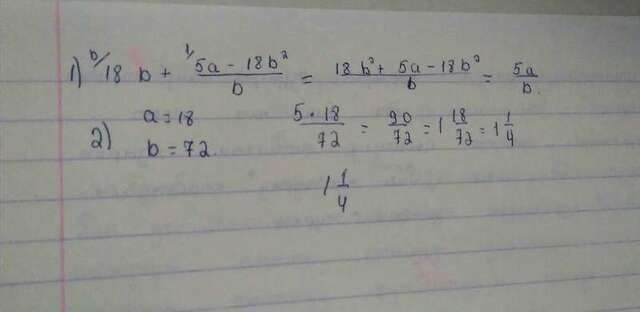 1) b/ 18 b + 1/ (5a - 18b²)/b = (18b² + 5a - 18b²)/b = 5a/b.
2) a = 18
b = 72. (5 · 18)/72 = 90/72 = 1 18/72 = 1 1/4
1 1/4